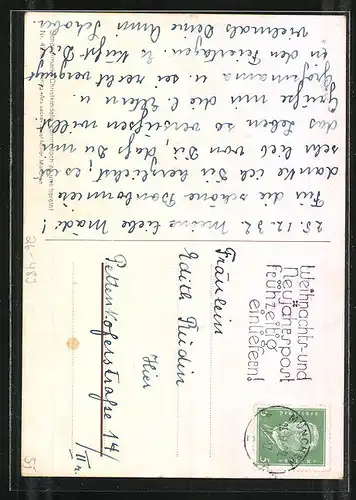 25.12.32. Meine liebe Mädi!
Für die schöne Bonbonniere
danke ich Dir herzlichst, es ist
sehr lieb von Dir, daß Du mir
das Leben so versüßen willst.
Grüße mir die l. Eltern u.
Großmama u. sei recht vergnügt
in den Feiertagen. Es küßt Dich
vielmals Deine Anni
Weihnachts- und
Neujahrspost
frühzeitig
einliefern!
Fräulein
Edith Rüdin
Hier
Pettenkoferstraße 14/
II r.
26-482
5
5
MÜNCHEN